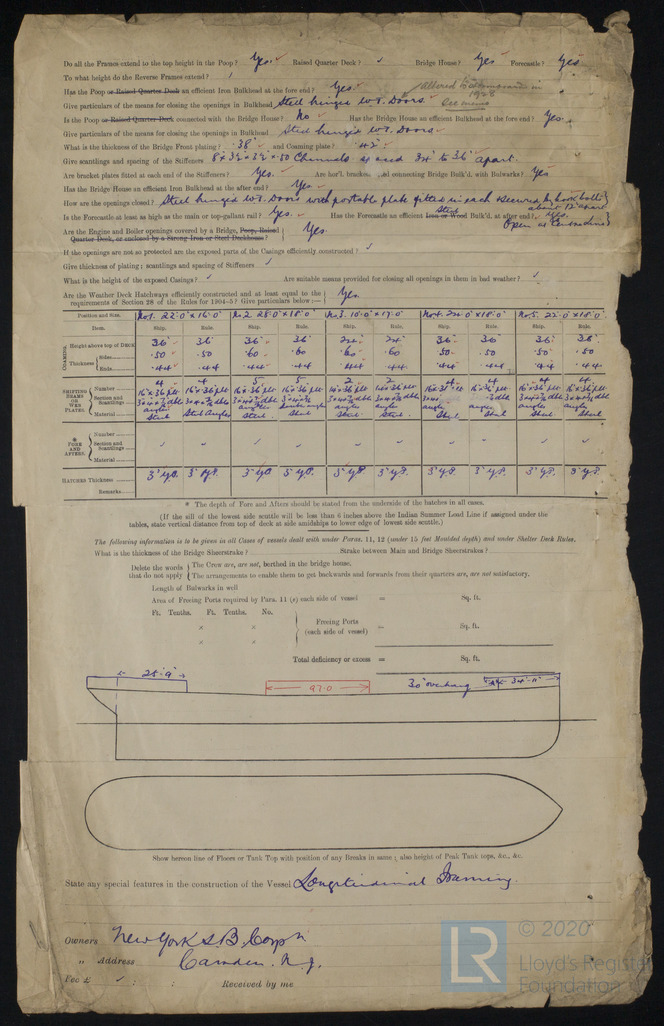 Do all the Frames extend to the top height in the Poop? Yes. Raised Quarter Deck? Bridge House? Yes Forecastle? Yes
To what height do the Reverse Frames extend?
Has the Poop or Raised Quarter Deck an efficient Iron Bulkhead at the fore end? Yes. altered to in
1928
Give particulars of the means for closing the openings in Bulkhead Steel hinged W.T. Doors.
Is the Poop or Raised Quarter Deck connected with the Bridge House? No Has the Bridge House an efficient Bulkhead at the fore end? Yes.
Give particulars of the means for closing the openings in Bulkhead Steel hinged W.T. Doors
What is the thickness of the Bridge Front plating? .38" and Coaming plate? .42"
Give scantlings and spacing of the Stiffeners 8 × 3½ × 3½ × .50 Channels spaced 34" to 36" apart.
Are bracket plates fitted at each end of the Stiffeners? Yes. Are hor'l. brackets, connecting Bridge Bulk'd. with Bulwarks? Yes
Has the Bridge House an efficient Iron Bulkhead at the after end? Yes
How are the openings closed? Steel hinged W.T. Doors with portable plate fitted in each secured by hook bolts
about 12" apart
Is the Forecastle at least as high as the main or top-gallant rail? Yes. Has the Forecastle an efficient Iron or Wood Steel Bulk'd. at after end? Yes.
Open at Centreline
Are the Engine and Boiler openings covered by a Bridge, Poop, Raised
Quarter Deck, or enclosed by a Strong Iron or Steel Deckhouse? Yes
If the openings are not so protected are the exposed parts of the Casings efficiently constructed?
Give thickness of plating; scantlings and spacing of Stiffeners
What is the height of the exposed Casings? Are suitable means provided for closing all openings in them in bad weather?
Are the Weather Deck Hatchways efficiently constructed and at least equal to the
requirements of Section 28 of the Rules for 1904-5? Give particulars below:— Yes.
Position and Size. No.1. 22'0" × 16'0" No.2. 28'0" × 18'0" No.3. 10'0" × 17'0" No.4. 24'0" × 18'0" No.5. 22'0" × 18'0"
Item. Ship. Rule. Ship. Rule. Ship. Rule. Ship. Rule. Ship. Rule.
COAMING Height above top of DECK 36 36 36 36 24" 24" 36 36 36 36
Thickness Sides .50 .50 .60 .60 .60 .60 .50 .50 .50 .50
Ends .44 .44 .44 .44 .44 .44 .44 .44 .44 .44
SHIFTING BEAMS OR WEB PLATES. Number 4 4 5 5 2 2 4 4 4 4
Section and Scantlings
Material Steel
* FORE AND AFTERS. Number
Section and Scantlings
Material
HATCHES Thickness 3" Y.P. 3" Y.P. 3" Y.P. 3" Y.P. 3" Y.P. 3" Y.P. 3" Y.P. 3" Y.P. 3" Y.P. 3" Y.P.
Remarks
* The depth of Fore and Afters should be stated from the underside of the hatches in all cases.
(If the sill of the lowest side scuttle will be less than 6 inches above the Indian Summer Load Line if assigned under the
tables, state vertical distance from top of deck at side amidships to lower edge of lowest side scuttle.)
The following information is to be given in all Cases of vessels dealt with under Paras. 11, 12 (under 15 feet Moulded depth) and under Shelter Deck Rules.
What is the thickness of the Bridge Sheerstrake? Strake between Main and Bridge Sheerstrakes?
Delete the words The Crew are, are not, berthed in the bridge house.
that do not apply The arrangements to enable them to get backwards and forwards from their quarters are, are not satisfactory.
Length of Bulwarks in well
Area of Freeing Ports required by Para. 11 (e) each side of vessel = Sq. ft.
Ft. Tenths. Ft. Tenths. No.
×
×
Freeing Ports
(each side of vessel) = Sq. ft.
×
×
Total deficiency or excess = Sq. ft.
25'.9" 97.0 30" overhang 34'.11"
Show hereon line of Floors or Tank Top with position of any Breaks in same; also height of Peak Tank tops, &c., &c.
State any special features in the construction of the Vessel Longitudinal Framing.
Owners New York S.B. Corp'n
" Address Camden. N.J.
Fee £ : : Received by me
LR © 2020
Lloyd's Register
Foundation